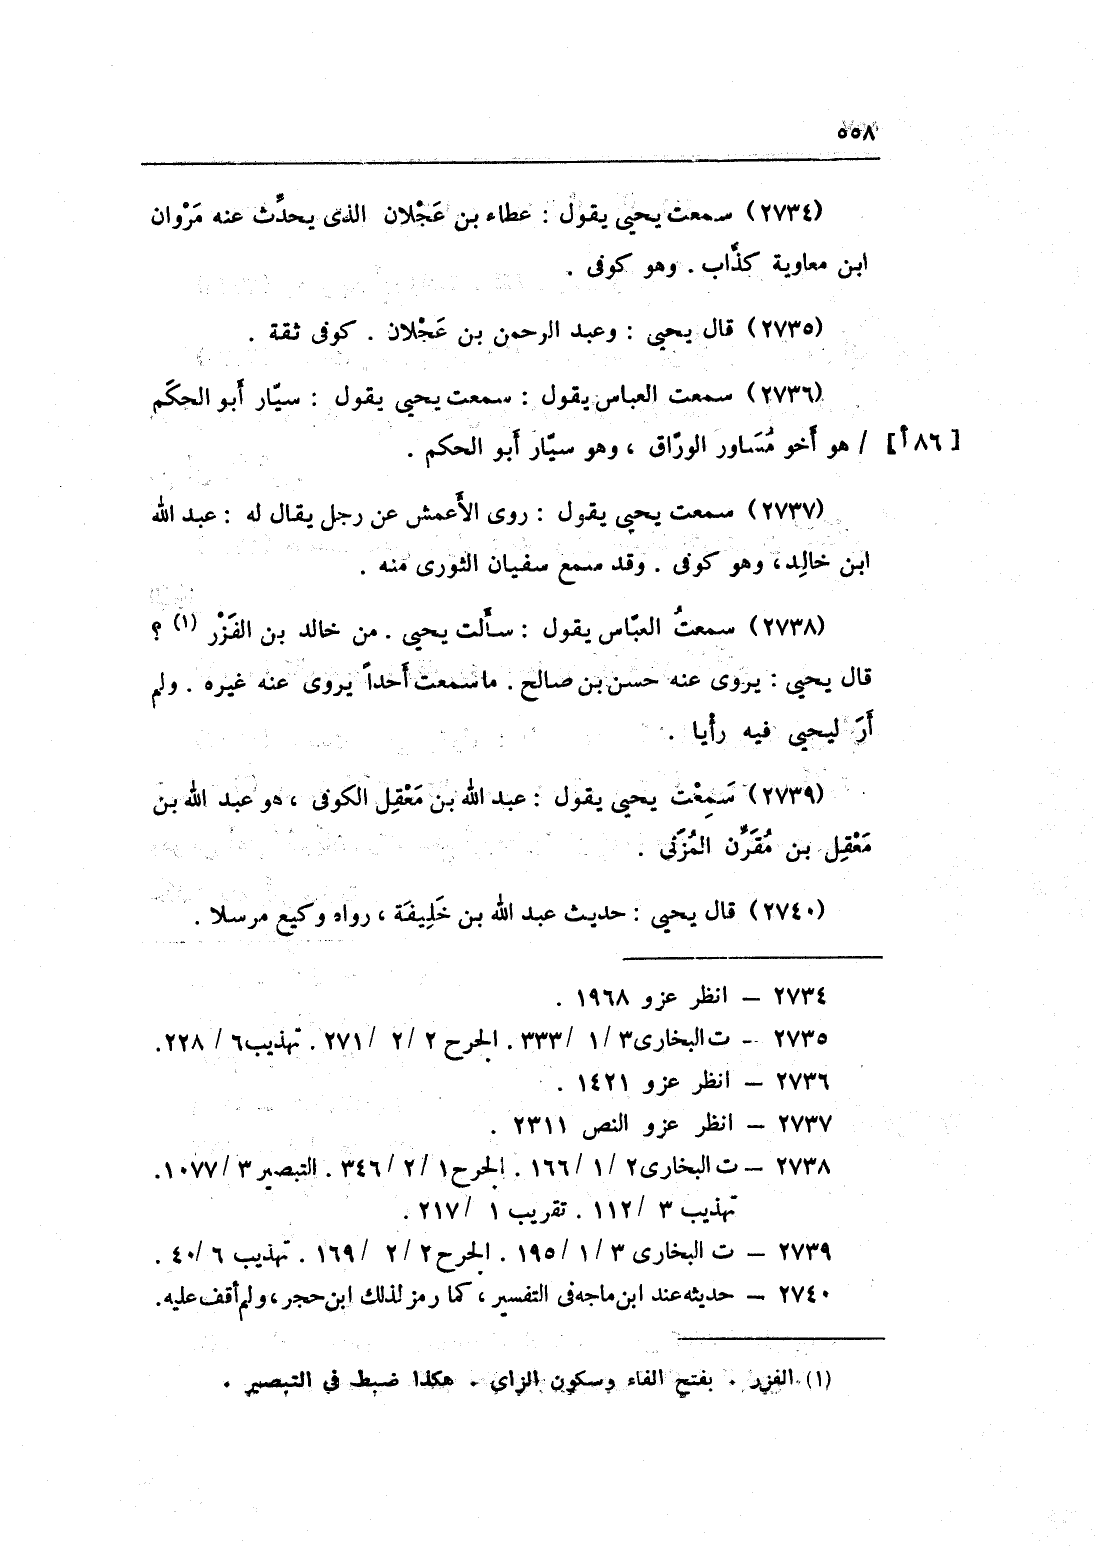 ٥٥٨
(٢٧٣٤) سمعت يحيى يقول : عطاء بن عَجْلان الذى يحدِّث عنه مَرْوان
ابن معاوية كذَّاب . وهو كوفى .
(٢٧٣٥) قال يحيى : وعبد الرحمن بن عَجْلان . كوفى ثقة .
(٢٧٣٦) سمعت العباس يقول : سمعت يحيى يقول : سيّار أبو الحكَم
[ ٨٦أ] / هو أَخو مُسَاور الورّاق ، وهو سيّار أَبو الحكم .
(٢٧٣٧) سمعت يحيى يقول : روى الأَعمش عن رجل يقال له : عبد الله
ابن خالِد، وهو كوفى . وقد سمع سفيان الثورى منه .
(٢٧٣٨) سمعتُ العبّاس يقول : سأَلت يحيى . من خالد بن الفَزْر (١) ؟
قال يحيى : يروى عنه حسن بن صالح . ماسمعت أَحداً يروى عنه غيره . ولم
أَرَ ليحيى فيه رأيا .
(٢٧٣٩) سَمِعْت يحيى يقول : عبد الله بن مَعْقِل الكوفى ، هو عبد الله بن
مَعْقِل بن مُقَرِّن المُزَنى .
(٢٧٤٠) قال يحيى : حديث عبد الله بن خَلِيفَة ، رواه وكيع مرسلا .
٢٧٣٤ – انظر عزو ١٩٦٨ .
٢٧٣٥ – ت البخارى٣/ ١/ ٣٣٣. الجرح ٢/ ٢/ ٢٧١. تهذيب٦/ ٢٢٨.
٢٧٣٦ – انظر عزو ١٤٢١ .
٢٧٣٧ – انظر عزو النص ٢٣١١ .
٢٧٣٨ – ت البخارى٢/ ١/ ١٦٦. الجرح١/ ٢/ ٣٤٦. التبصير٣/ ١٠٧٧.
تهذيب ٣/ ١١٢. تقريب ١/ ٢١٧.
٢٧٣٩ – ت البخارى ٣/ ١/ ١٩٥. الجرح٢/ ٢/ ١٦٩. تهذيب ٦/ ٤٠ .
٢٧٤٠ – حديثه عند ابن ماجه فى التفسير ، كما رمز لذلك ابن حجر ، ولم أقف عليه.
(١) الفزر . بفتح الفاء وسكون الزاي . هكذا ضبط في التبصير .